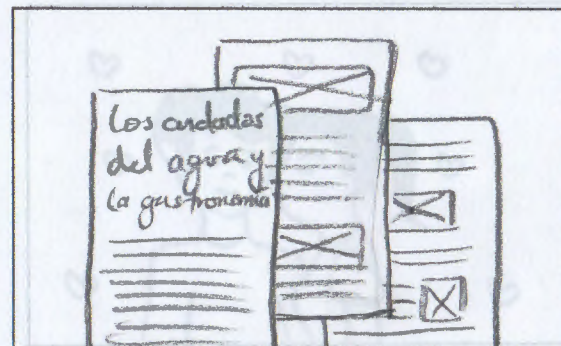 Los cuidados
del agua y
la gastronomía